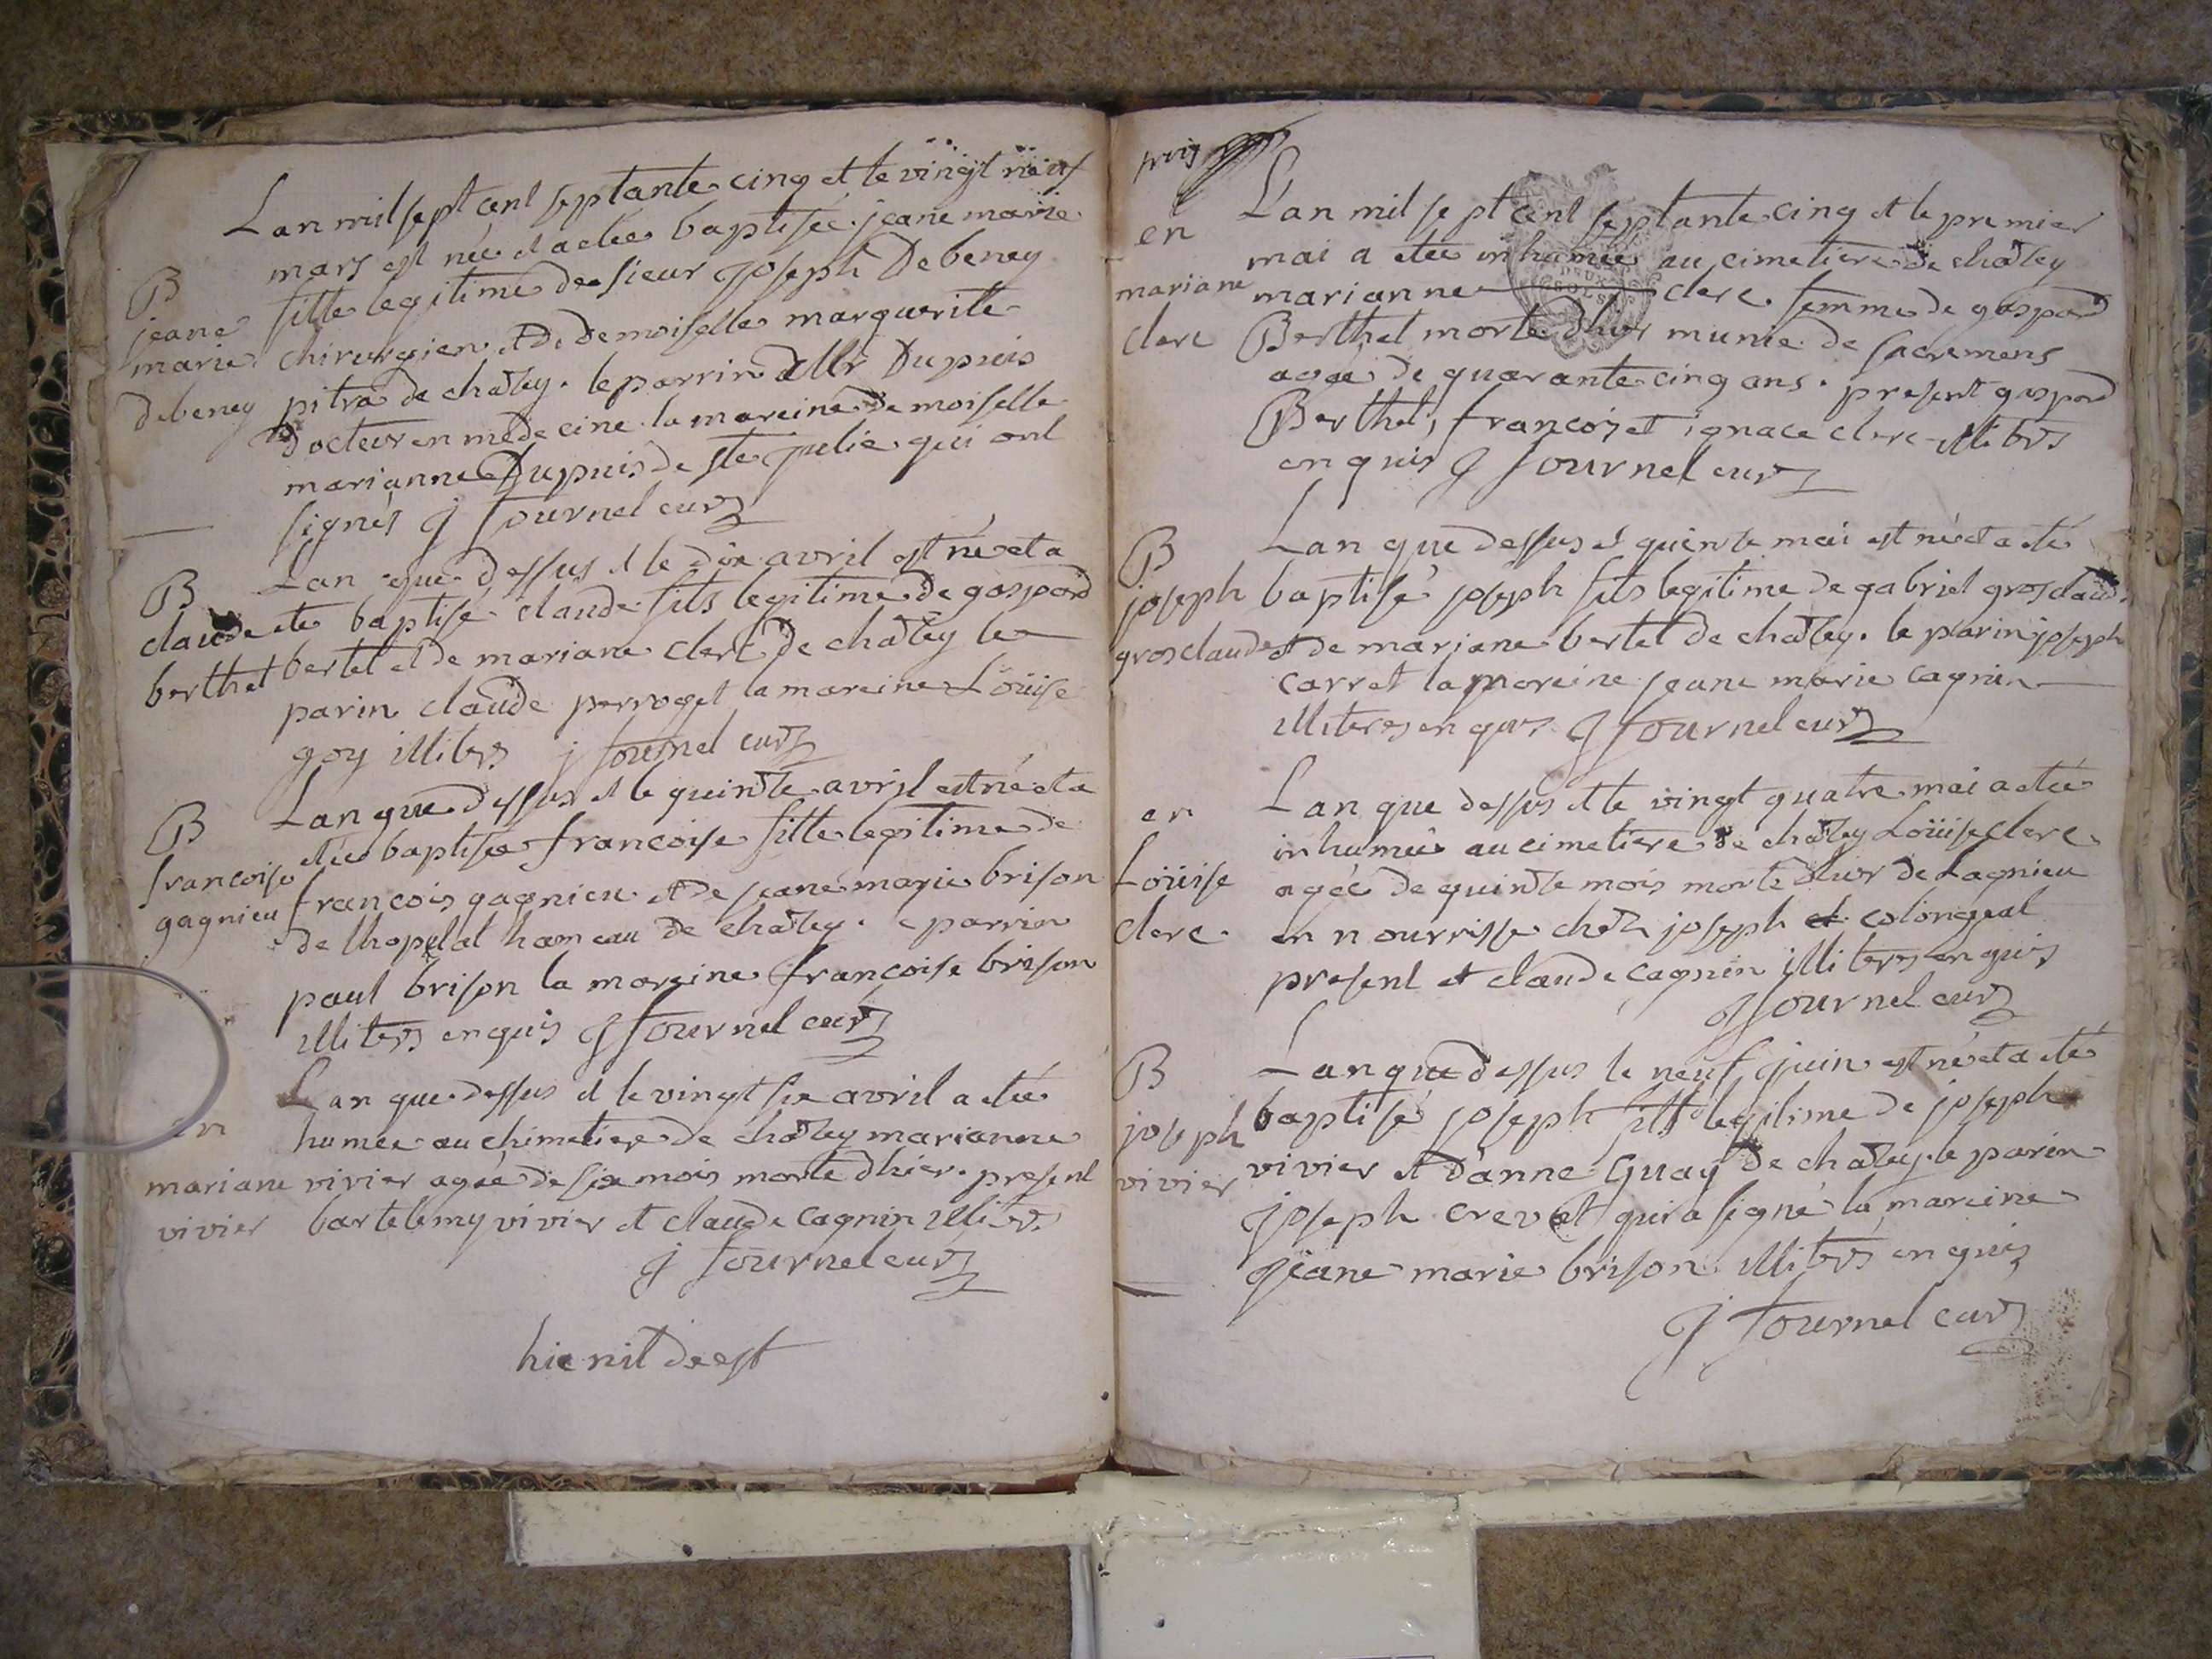 Lan mil sept cent septante cinq et le vingt neuf
mars est née et a etée baptisée jeane marie
B
jeane
marie
debeney
fille legitime de sieur joseph Debeney
chirurgien et de demoiselle marguerite
pitra de chatey. le parrin Mr Dupuis
Docteur en medecine la mareine demoiselle
marianne Dupuis de ste julie qui ont
signés J fournel curé
B
claude
berthet
Lan que dessus et le dix avril est né et a
ete baptisé claude fils legitime de gaspard
bertet et de mariane clerc de chatey le
parin claude perroget la mareine Loüise
goy illiters j fournel curé
B
francoise
gagnieu
Lan que dessus et le quinte avril est né et a
etée baptisée francoise fille legitime de
francois gagnieu et de jeane marie brison
de lhopital hameau de chatey. e parrin
paul brison la mareine francoise brison
illiters enquis J fournel curé
en
mariane
vivier
Lan que dessus et le vingt six avril a etée
humée au chimetiere de chatey marianne
vivier agée de six mois morte dhier. present
bartelemy vivier et claude cagnin illiters
J fournel curé
hic nil deest
en
mariane
clerc
L'an mil sept cent septante cinq et le premier
mai a etée inhumée au cimetiere de chatey
marianne clerc. femme de gaspard
Berthet morte dhier munie de sacremens
agée de quarante cinq ans. present gaspard
Berthet, francois et ignace clerc illiters
enquis J fournel curé
B
joseph
grosclaude
Lan que dessus et quinte mai est né et a eté
baptisé joseph fils legitime de gabriel grosclaude
et de mariane bertet de chatey. le parin joseph
carret la mareine jeane marie cagnin
illiteres enquis J fournel curé
en
Loüise
clerc.
Lan que dessus et le vingt quatre mai a etée
inhumée au cimetiere de chatey Loüise clerc
agée de quinte mois morte dhier de Lagnieu
en nourrisse chetz joseph et colongeat
present et claude cagnin illiteres enquis
J fournel curé
B
joseph
vivier
Lan que dessus le neuf juin est né et a eté
baptisé joseph fils legitime de joseph
vivier et d'anne Guay de chatey. le parin
joseph crevat qui a signé la mareine
jeane marie brison illiters enquis
J fournel curé